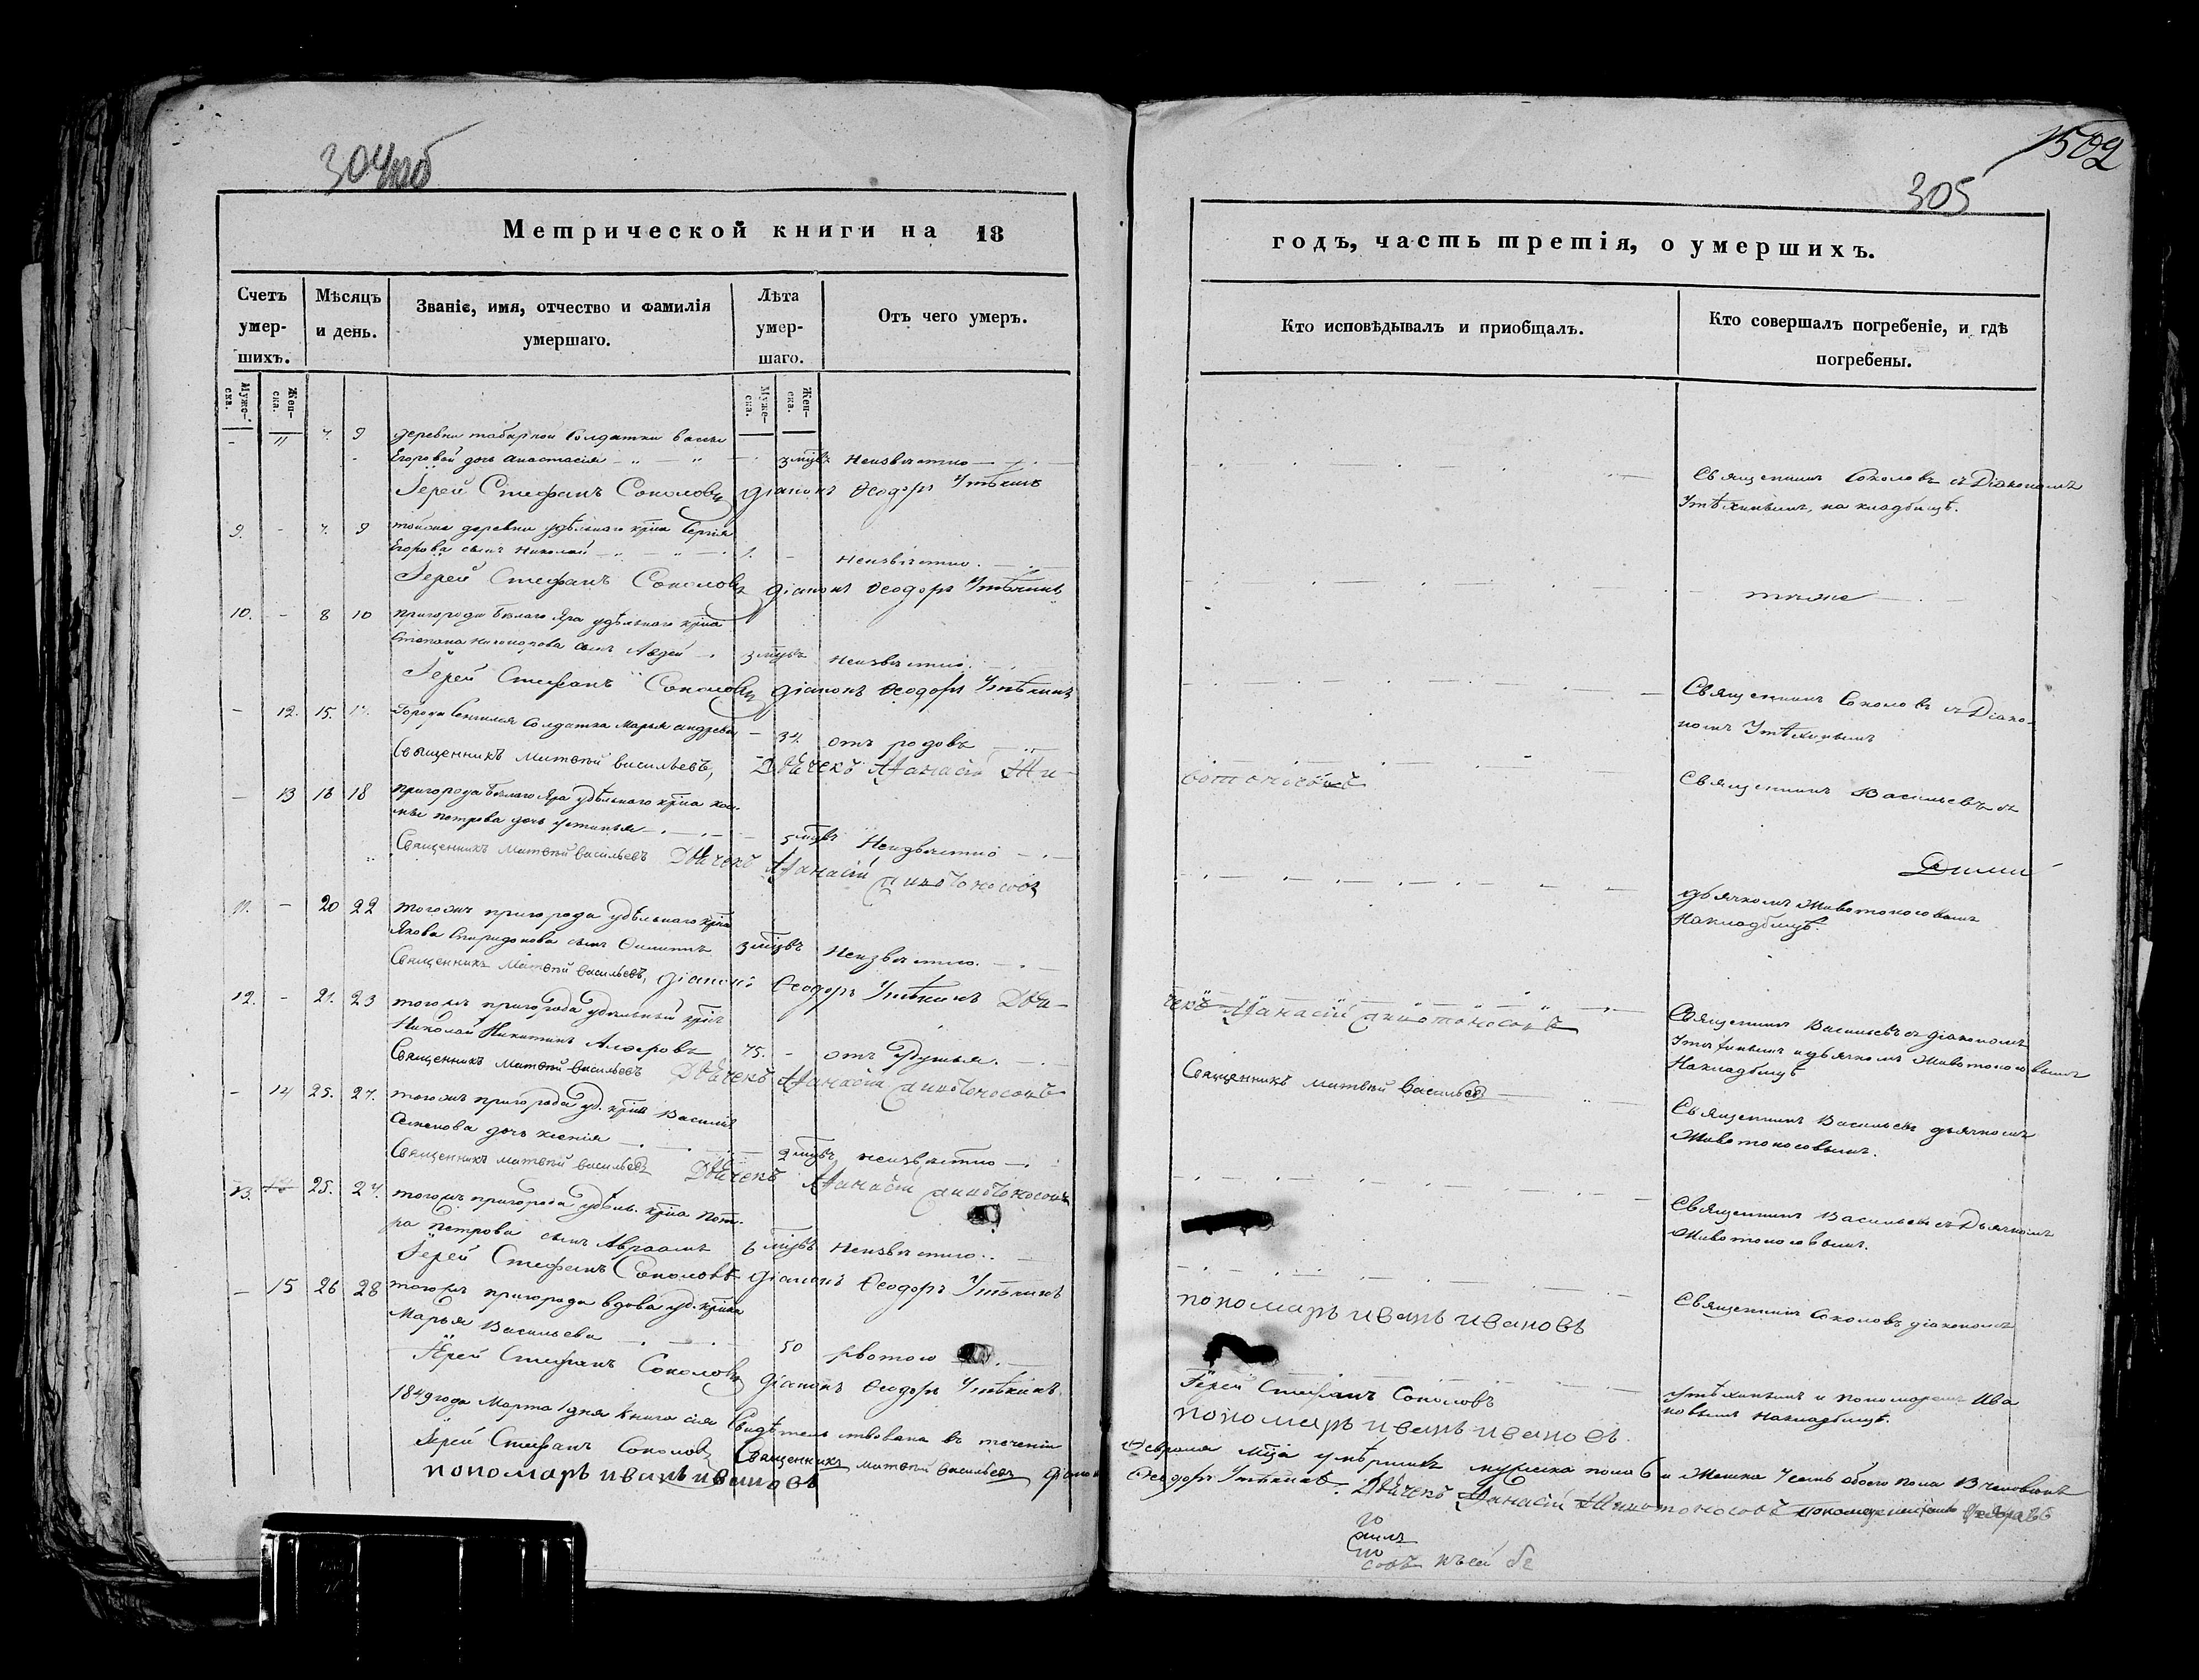 304 об
Метрической книги на 18
Счетъ умер-шихъ.
Мѣсяцъ и день.
Званіе, имя, отчество и фамилія умершаго.
Лѣта умер-шаго.
Отъ чего умеръ.
Муже-ска.
Жен-ска.
Муже-ска.
Жен-ска.
- 11 7. 9 деревни солдатки
Егоровой дочь Анастасія 3 мцвъ неизвѣстно
Іерей Стефанъ Соколовъ діаконъ Ѳеодоръ Утѣхинъ
9. - 7. 9 тойже деревни удѣльнаго кр-на Сергія
Егорова сынъ Николай 1. - неизвѣстно.
Іерей Стефанъ Соколовъ діаконъ Ѳеодоръ Утѣхинъ
10. - 8 10 пригорода Бѣлаго Яра удѣльнаго кр-на
Степана Никонорова сынъ Авдей 3 мцвъ неизвѣстно.
Іерей Стефанъ Соколовъ діаконъ Ѳеодоръ Утѣхинъ
- 12. 15. 17. Города Сенгилея солдатка Марья Андреева - 34. отъ родовъ
Священникъ Матвѣй Васильевъ, Дьячекъ Афанасій Жи-
- 13 16 18 пригорода Бѣлаго Яра удѣльнаго кр-на Кос-
мы Петрова дочь Устинья 5 мцвъ Неизвѣстно
Священникъ Матвѣй Васильевъ Дьячекъ Афанасій Животоносовъ
11. - 20 22 тогожъ пригорода удѣльнаго кр-на
Якова Спиридонова сынъ Филиппъ 3 мцвъ Неизвѣстно.
Священникъ Матвѣй Васильевъ, діаконъ Ѳеодоръ Утѣхинъ Дья-
12. - 21. 23 тогожъ пригорода удѣльный кр-нъ
Николай Никитинъ 75. - отъ удушья.
Священникъ Матвѣй Васильевъ Дьячекъ Афанасій Животоносовъ
- 14 25. 27. тогожъ пригорода уд. кр-на Василія
Семенова дочь Ксенія 2 мцвъ неизвѣстно
Священникъ Матвѣй Васильевъ Дьячекъ Афанасій Животоносовъ
13. 25. 27. тогожъ пригорода удѣль. кр-на Пет-
ра Петрова сынъ Авраамъ 6 мцвъ Неизвѣстно.
Іерей Стефанъ Соколовъ діаконъ Ѳеодоръ Утѣхинъ
- 15 26 28 тогожъ пригорода вдова уд. кр-нка
Марья Васильева 50 рвотою
Іерей Стефанъ Соколовъ діаконъ Ѳеодоръ Утѣхинъ
1849 года Марта 1 дня книга сія Свидѣтельствована въ теченіи
Іерей Стефанъ Соколовъ Священникъ Матвѣй Васильевъ діаконъ
пономарь иванъ ивановъ
1502
305
годъ, часть третія, о умершихъ.
Кто исповѣдывалъ и приобщалъ.
Кто совершалъ погребеніе, и гдѣ погребены.
Священникъ Соколовъ съ Діакономъ
Утѣхинымъ, на кладбищѣ.
тѣже
Священникъ Соколовъ съ Діако-
номъ Утѣхинымъ
вотоносовъ
Священникъ Васильевъ съ
дьячкомъ Животоносовымъ
На кладбищѣ.
чекъ Афанасій Животоносовъ
Священникъ Васильевъ съ діакономъ
Утѣхинымъ и дьячкомъ Животоносовымъ
На кладбищѣ
Священникъ Матвѣй Васильевъ
Священникъ Васильевъ дьячкомъ
Животоносовымъ.
Священникъ Васильевъ съ Дьячкомъ
Животоносовымъ.
пономарь иванъ ивановъ
Священникъ Соколовъ діакономъ
Іерей Стефанъ Соколовъ
Утѣхинымъ и пономаремъ Ива
новымъ На кладбищѣ.
пономарь иванъ ивановъ.
Февраля мца умершихъ мужеска пола 6 и женска 7 обоего пола 13 человѣкъ
Ѳеодоръ Утѣхинъ. Дьячекъ Афанасій Животоносовъ